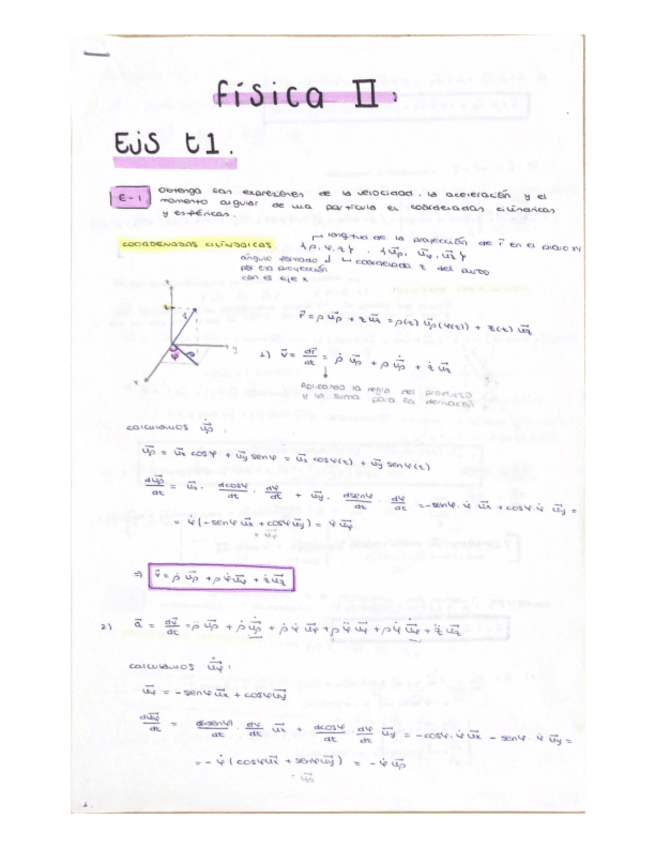 Física II:
Ejs t1.
E-1 Obtenga las expresiones de la velocidad, la aceleración y el
momento angular de una partícula en coordenadas cilíndricas
y esféricas.
COORDENADAS CILÍNDRICAS. {ρ, φ, z}, {u⃗ρ, u⃗φ, u⃗z}
longitud de la proyección de r⃗ en el plano XY
ángulo formado por esa proyección con el eje x
coordenada z del punto
z
y
x
φ
ρ
r⃗ = ρ u⃗ρ + z u⃗z = ρ(t) u⃗ρ(φ(t)) + z(t) u⃗z
1) v⃗ = dr⃗/dt = ρ̇ u⃗ρ + ρ u⃗̇ρ + ż u⃗z
Aplicando la regla del producto
y la suma para la derivación
calculamos u⃗̇ρ:
u⃗ρ = u⃗x cosφ + u⃗y senφ = u⃗x cosφ(t) + u⃗y senφ(t)
du⃗ρ/dt = u⃗x · dcosφ/dt · dφ/dt + u⃗y · dsenφ/dt · dφ/dt = -senφ · φ̇ u⃗x + cosφ · φ̇ u⃗y =
= φ̇ (-senφ u⃗x + cosφ u⃗y) = φ̇ u⃗φ
= u⃗φ
⇒ v⃗ = ρ̇ u⃗ρ + ρ φ̇ u⃗φ + ż u⃗z
2) a⃗ = dv⃗/dt = ρ̈ u⃗ρ + ρ̇ u⃗̇ρ + ρ̇ φ̇ u⃗φ + ρ φ̈ u⃗φ + ρ φ̇ u⃗̇φ + z̈ u⃗z
calculamos u⃗̇φ:
u⃗φ = -senφ u⃗x + cosφ u⃗y
du⃗φ/dt = d(-senφ)/dt · dφ/dt u⃗x + dcosφ/dt · dφ/dt u⃗y = -cosφ · φ̇ u⃗x - senφ · φ̇ u⃗y =
= -φ̇ (cosφ u⃗x + senφ u⃗y) = -φ̇ u⃗ρ
= u⃗ρ